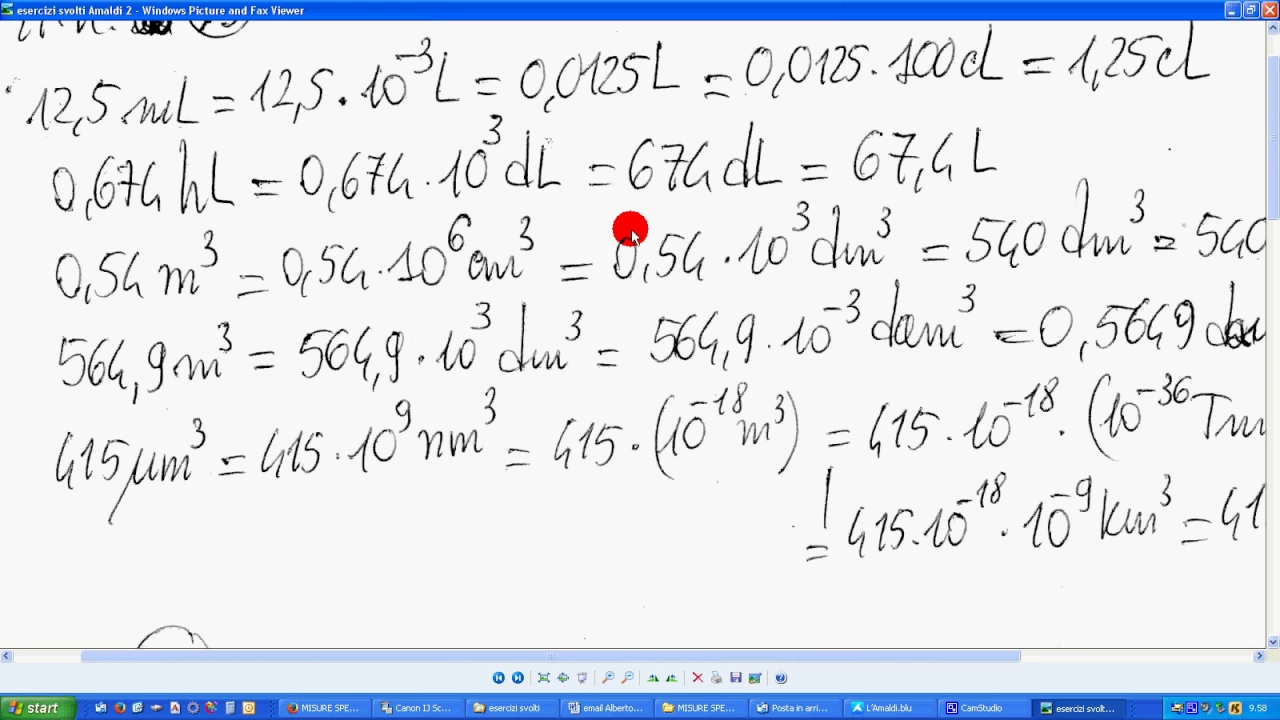 esercizi svolti Amaldi 2 - Windows Picture and Fax Viewer
12,5 mL = 12,5 · 10⁻³ L = 0,0125 L = 0,0125 · 100 cL = 1,25 cL
0,674 hL = 0,674 · 10³ dL = 674 dL = 67,4 L
0,54 m³ = 0,54 · 10⁶ cm³ = 0,54 · 10³ dm³ = 540 dm³ = 540
564,9 m³ = 564,9 · 10³ dm³ = 564,9 · 10⁻³ dam³ = 0,5649
415 μm³ = 415 · 10⁹ nm³ = 415 · (10⁻¹⁸ m³) = 415 · 10⁻¹⁸ · (10⁻³⁶ Tm
= 415 · 10⁻¹⁸ · 10⁻⁹ km³ = 41
start MISURE SPE... Canon IJ Sc... esercizi svolti email Alberto... MISURE SPE... Posta in arri... L'Amaldi.blu CamStudio esercizi svolt... 9.58